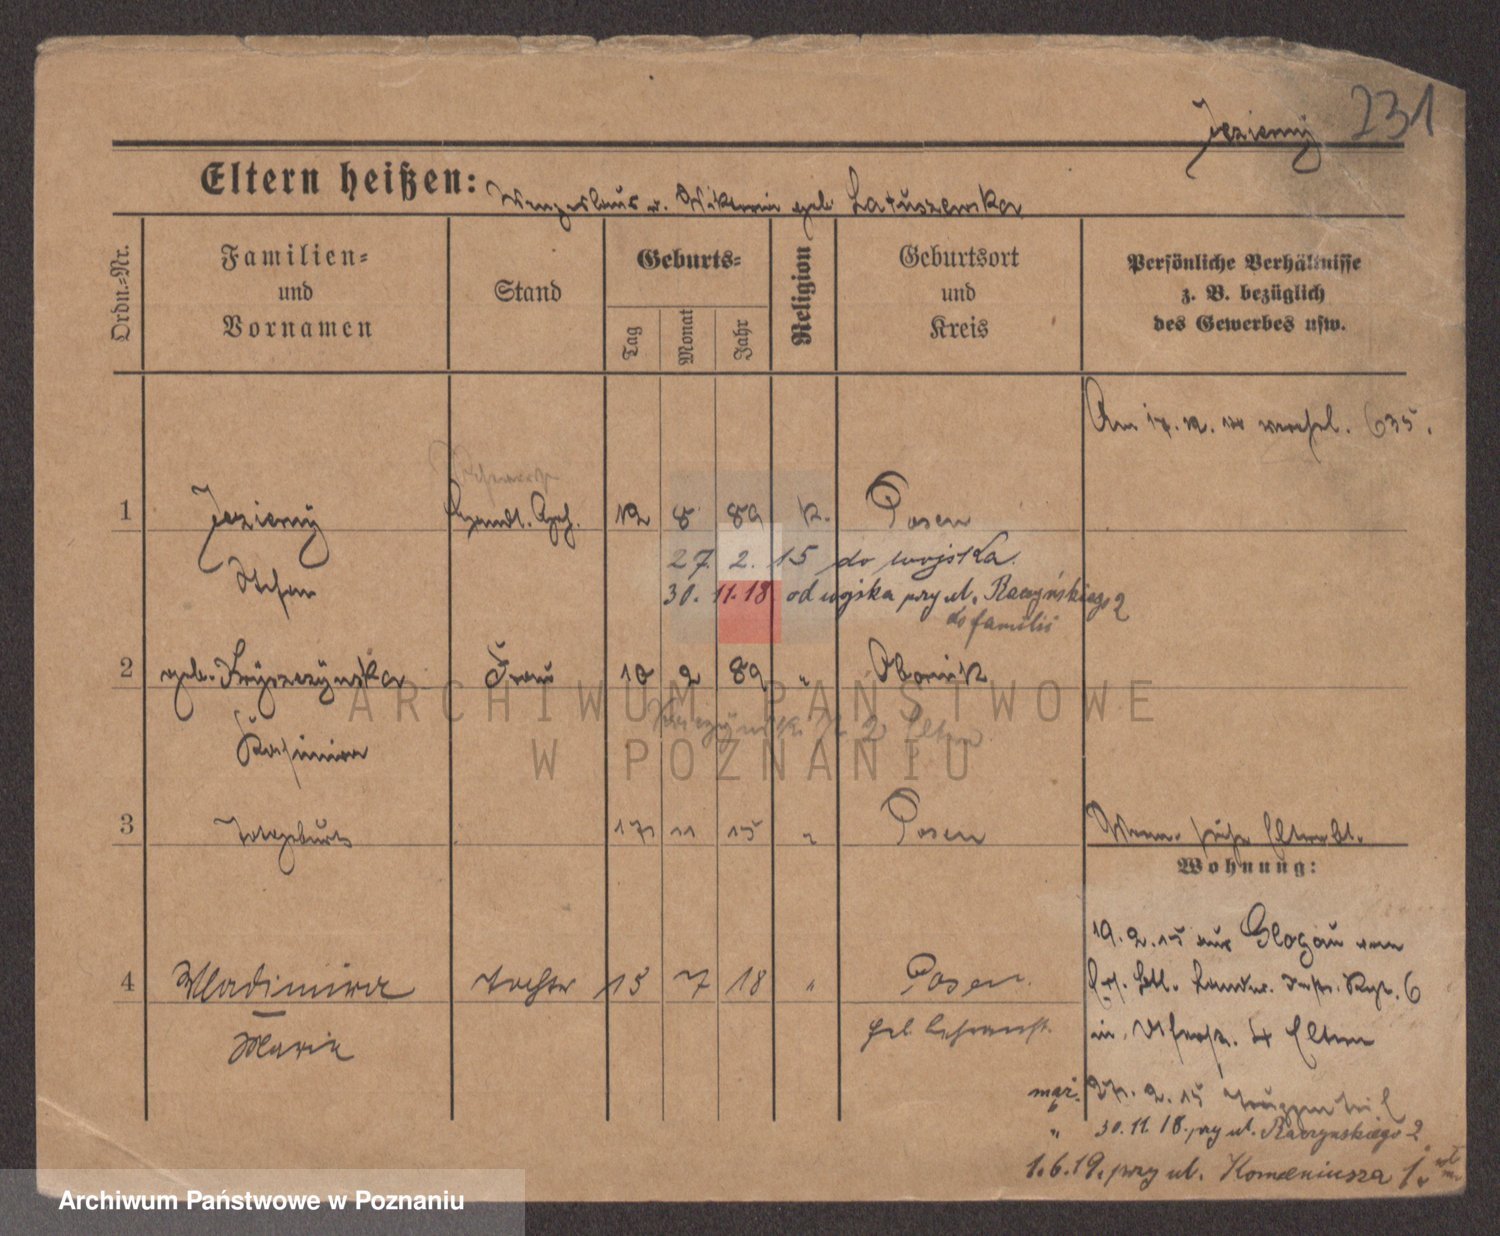 231
Jezierny
Eltern heißen: Wenzeslaus u. Viktoria geb. Latuszewska
Ordn.-Nr.
Familien-
und
Vornamen
Stand
Geburts-
Tag
Monat
Jahr
Religion
Geburtsort
und
Kreis
Persönliche Verhältnisse
z. B. bezüglich
des Gewerbes usw.
Am 17. 12. 635.
1 Jezierny 12 8 89 K. Posen
Stefan
27. 2. 15 do wojska.
30. 11. 18 od wojska przy ul. Raczyńskiego 2
do familii
2 geb. Fryszczyńska Frau 10 2 89 " Obornik
Kasimira
2 Eltern
3 Totgeburt 17 11 15 " Posen
Wohnung:
19. 2. 15 aus Glogau von
6
in, Eltern
4 Wladimira Tochter 15 7 18 " Posen
Maria
mąż 27. 2. 15 Truppenteil
" 30. 11. 18. przy ul. Raczynskiego 2
1. 6. 19. przy ul. Komeniusza 1.
ARCHIWUM PAŃSTWOWE
W POZNANIU
Archiwum Państwowe w Poznaniu